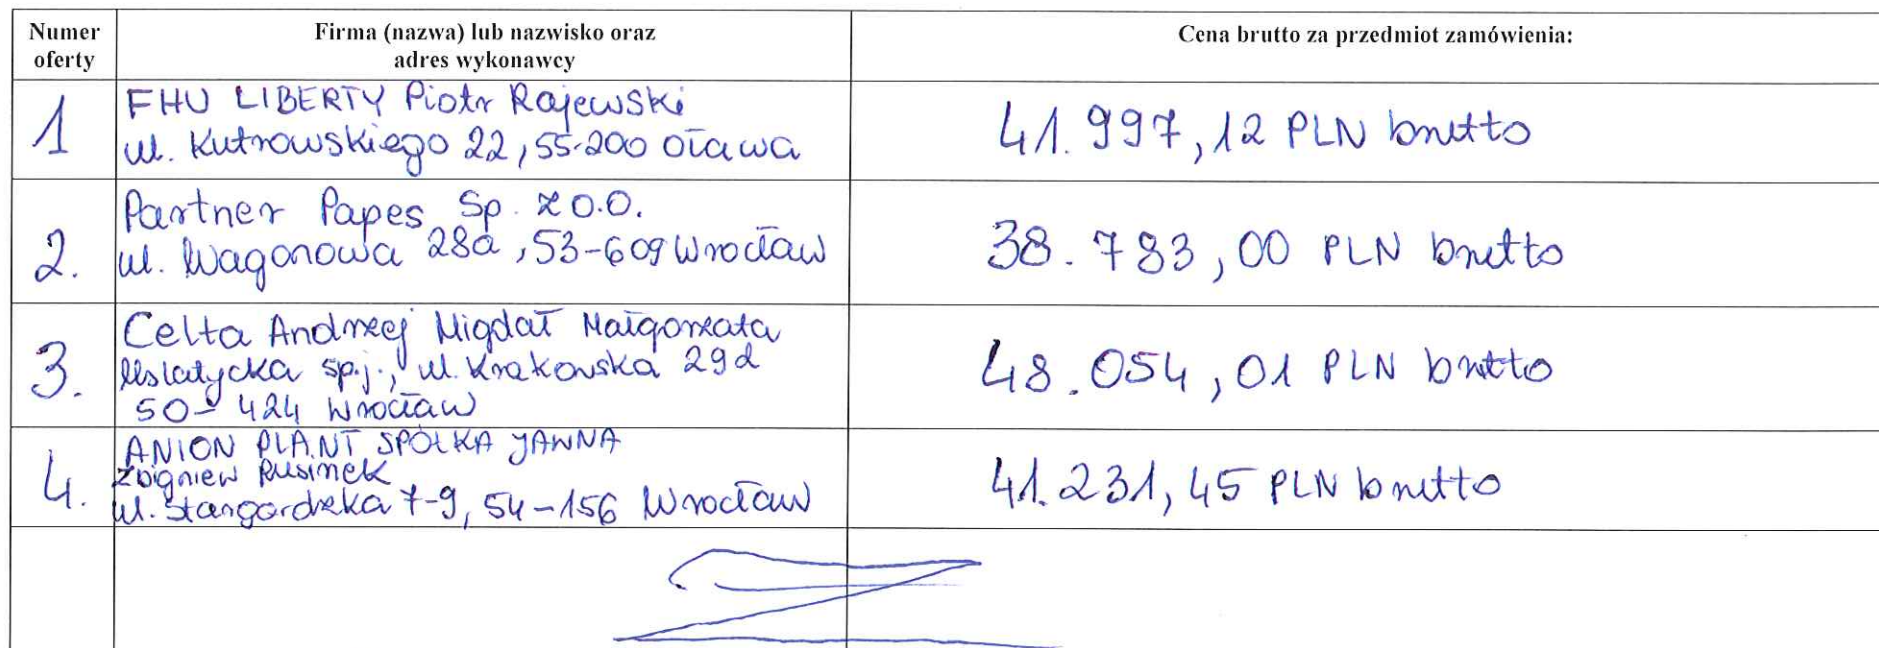 Numer
oferty
Firma (nazwa) lub nazwisko oraz
adres wykonawcy
Cena brutto za przedmiot zamówienia:
1
FHU LIBERTY Piotr Rajewski
ul. Kutrowskiego 22, 55-200 Oława
41.997,12 PLN brutto
2.
Partner Papes Sp. z o.o.
ul. Wagonowa 28a, 53-609 Wrocław
38.783,00 PLN brutto
3.
Celta Andrzej Migdał Małgorzata
sp.j., ul. Krakowska 29d
50-424 Wrocław
48.054,01 PLN brutto
4.
ANION PLANT SPÓŁKA JAWNA
Zbigniew Rusinek
ul. Stargardzka 7-9, 54-156 Wrocław
41.231,45 PLN brutto